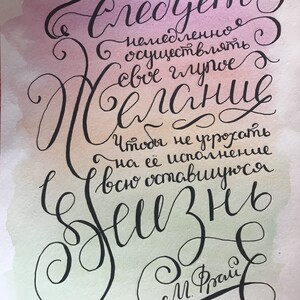 Следует
немедленно
осуществлять
свое глупое
Желание
Чтобы не угрохать
на её исполнение
всю оставшуюся
Жизнь
М. Фрай